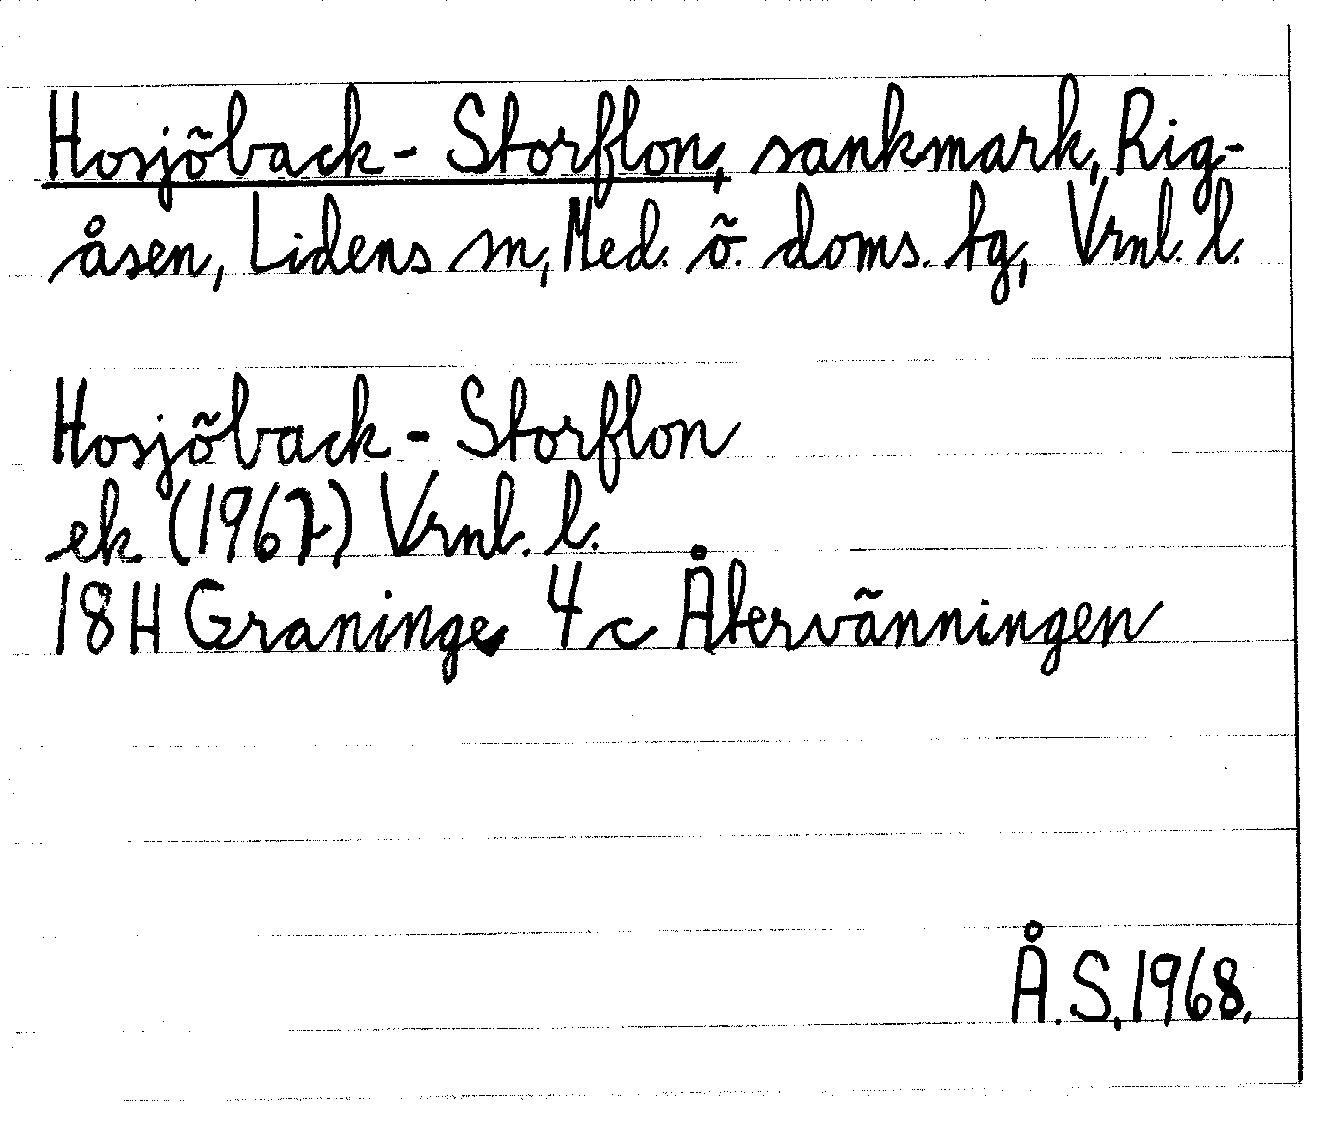 Hosjöback - Storflon, sankmark, Rig-
åsen, Lidens sn, Med. ö. doms. tg, Vrnl. l.
Hosjöback - Storflon
ek (1967) Vrnl. l.
18H Graninge 4c Återvänningen
Å.S. 1968.